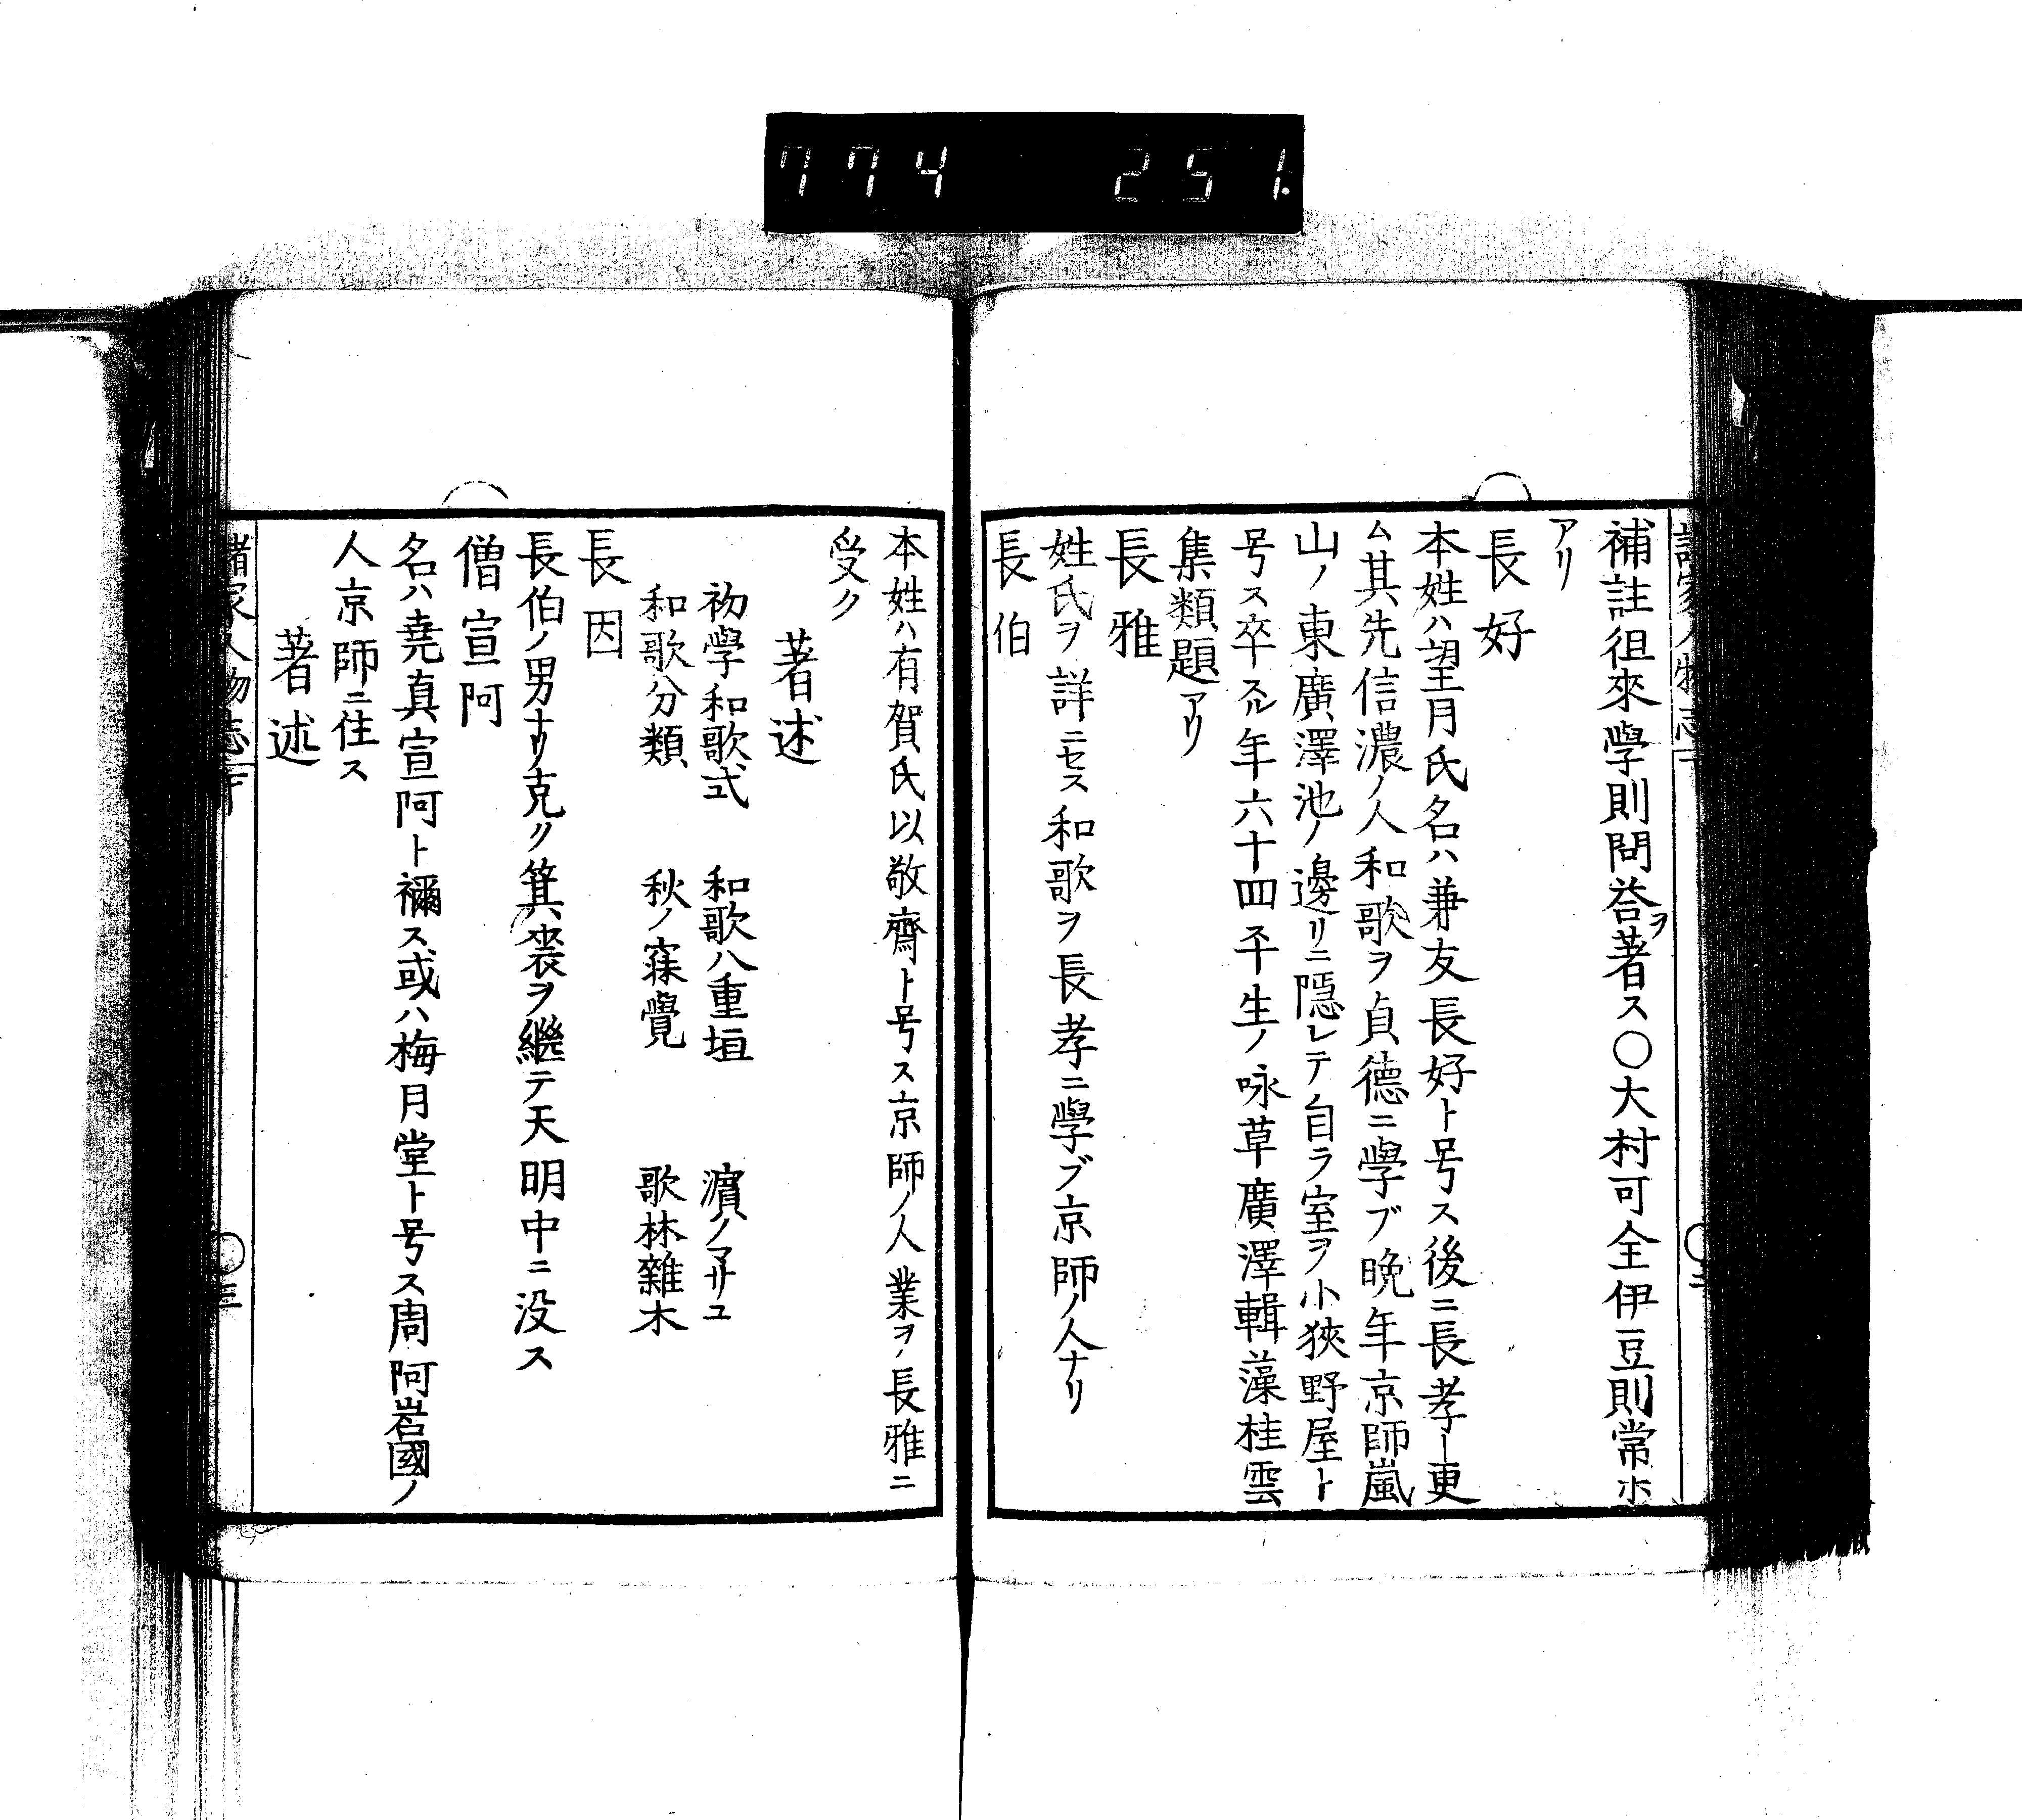 774 251.
補註徂來學則問荅ヲ著ス〇大村可全伊豆則常ホ
アリ
長好
本姓ハ望月氏名ハ兼友長好ト号ス後ニ長孝ト更
ム其先信濃ノ人和歌ヲ貞德ニ學ブ晩年京師嵐
山ノ東廣澤池ノ邊リニ隱レテ自ラ室ヲ小狹野屋ト
号ス卒スル年六十四平生ノ咏草廣澤輯藻桂雲
集類題アリ
長雅
姓氏ヲ詳ニセス和歌ヲ長孝ニ學ブ京師ノ人ナリ
長伯
本姓ハ有賀氏以敬齋ト号ス京師ノ人業ヲ長雅ニ
受ク
著述
初學和歌式 和歌八重垣 濵ノマサゴ
和歌分類 秋ノ寐覺 歌林雜木
長因
長伯ノ男ナリ克ク箕裘ヲ繼テ天明中ニ没ス
僧宣阿
名ハ堯真宣阿ト稱ス或ハ梅月堂ト号ス周阿岩國ノ
人京師ニ住ス
著述
諸家人物志下 三